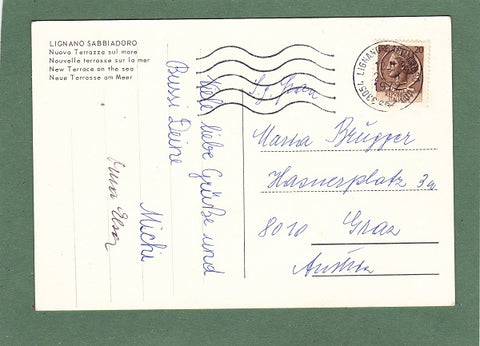 LIGNANO SABBIADORO
Nuova Terrazza sul mare
Nouvelle terrasse sur la mer
New Terrace on the sea
Neue Terrasse am Meer
Viele liebe Grüße und
Bussi Deine
Michi
33054 LIGNANO
S.g. Frau
Maria Brugger
Hasnerplatz 3a
8010 Graz
Austria